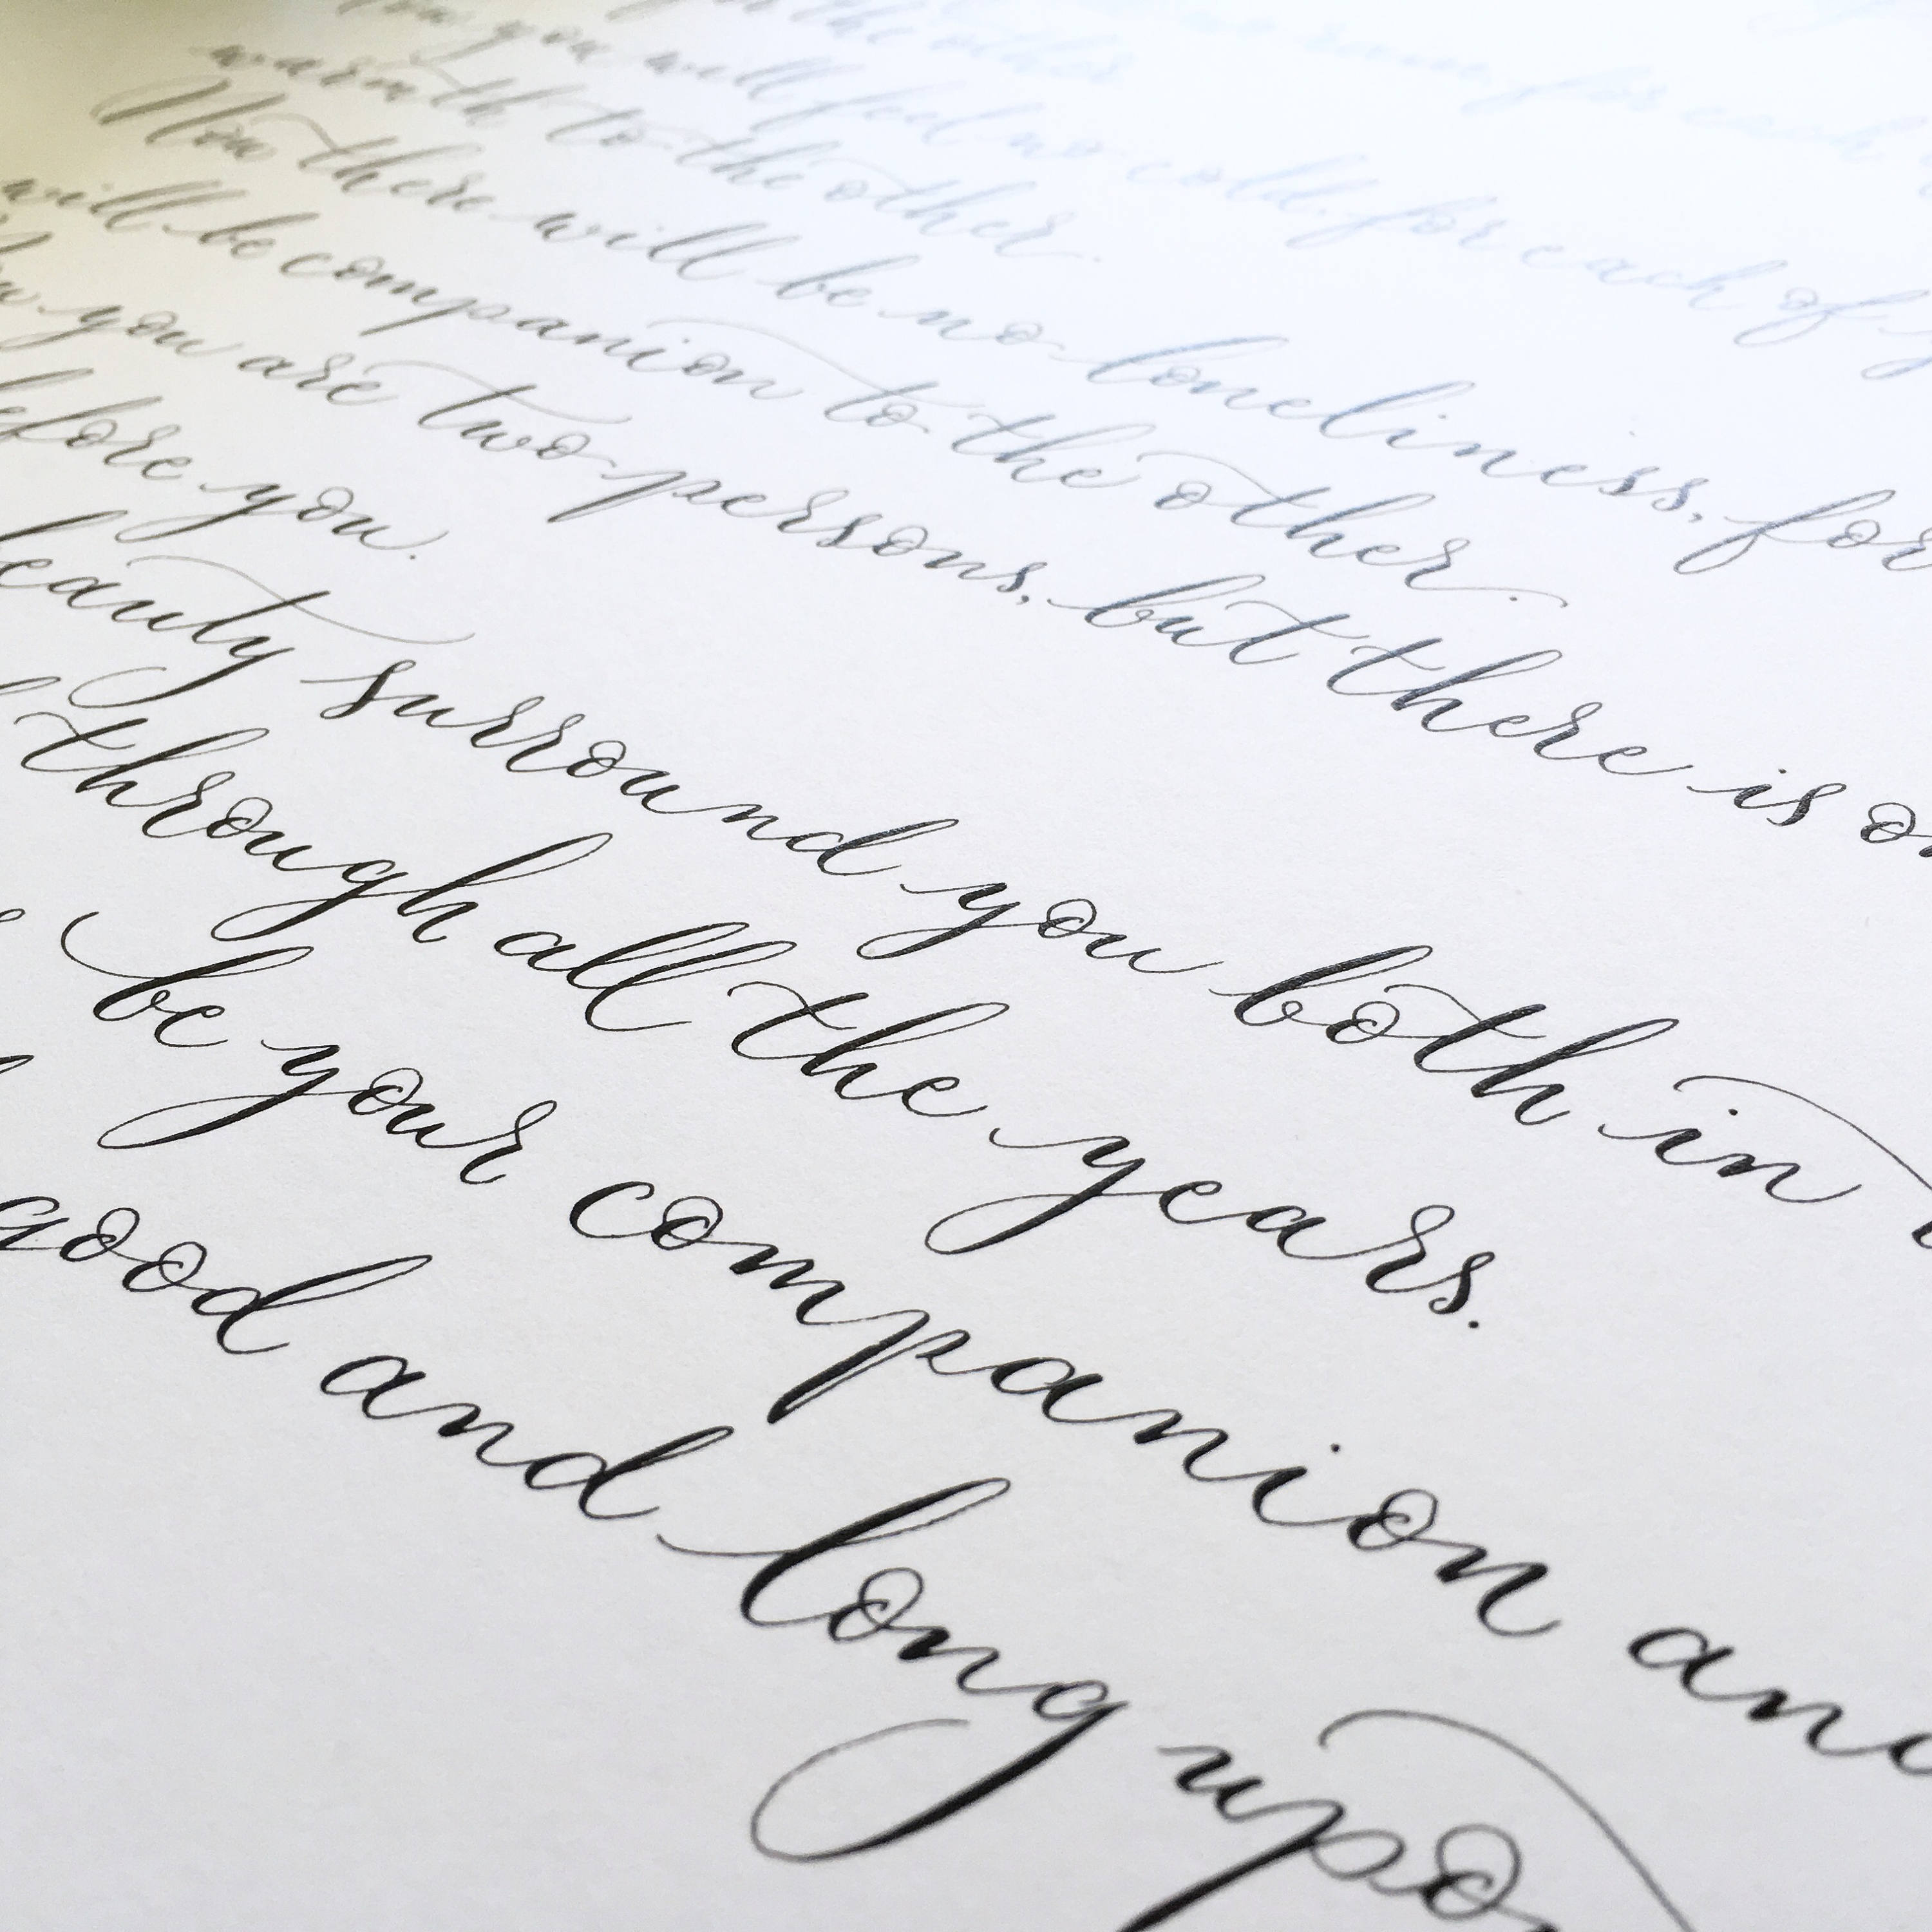 the other
you will feel no cold, for each of
warmth to the other.
Now there will be no loneliness, for
will be companion to the other.
you are two persons, but there is
before you.
beauty surround you both in
through all the years.
be your companion
good and long